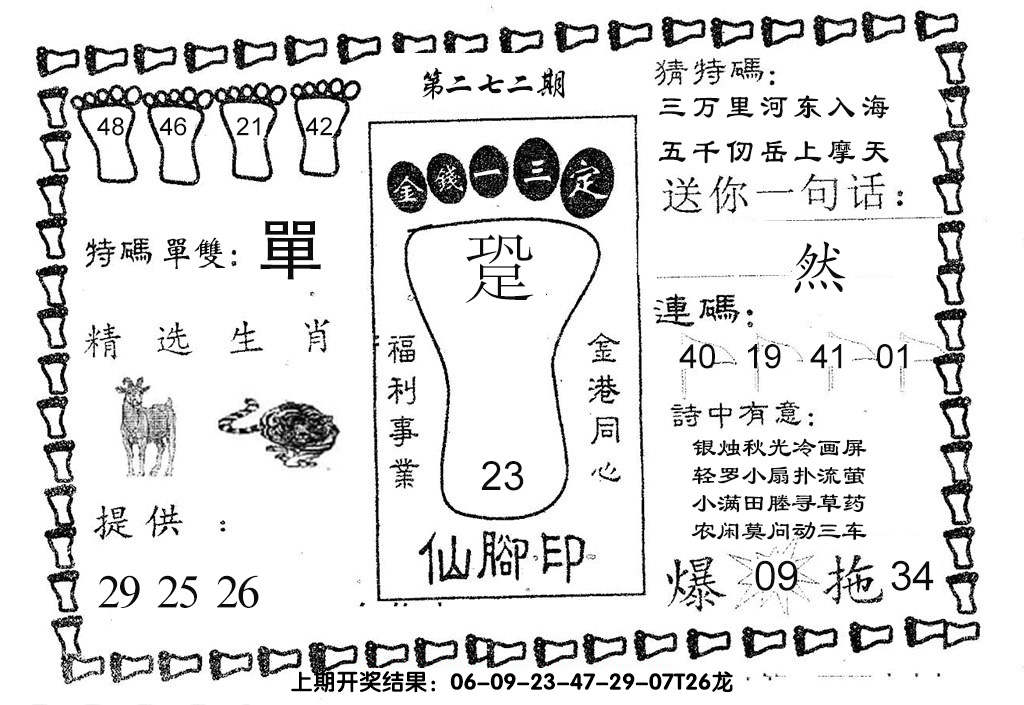 第二七二期
48 46 21 42
特碼單雙：單
精选生肖
提供：
29 25 26
金錢一三定
跫
福利事業
金港同心
23
仙腳印
猜特碼：
三万里河东入海
五千仞岳上摩天
送你一句话：
然
連碼：
40 19 41 01
詩中有意：
银烛秋光冷画屏
轻罗小扇扑流萤
小满田塍寻草药
农闲莫问动三车
爆 09 拖 34
上期开奖结果：06-09-23-47-29-07T26龙